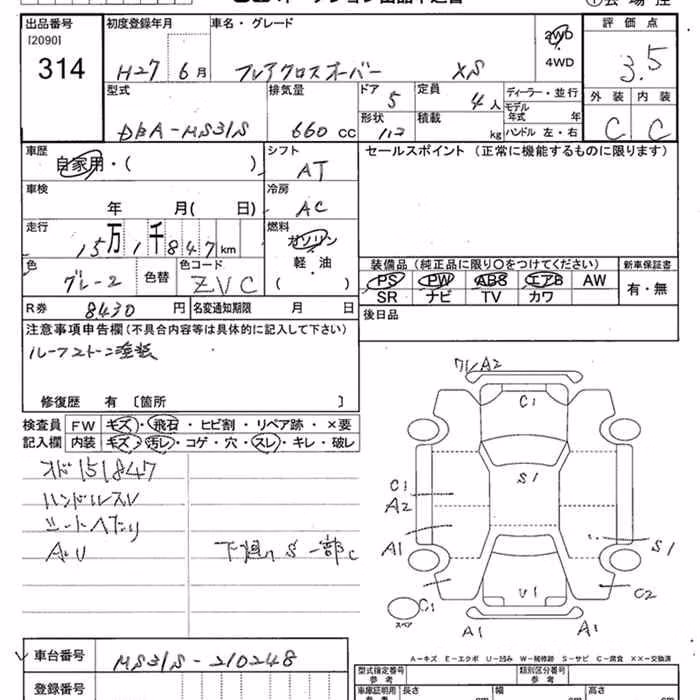 出品番号
[2090]
314
初度登録年月
H27 6月
車名・グレード
フレアクロスオーバー XS
2WD
4WD
評価点
3.5
外装 内装
C C
型式
DBA-MS31S
排気量
660 cc
ドア
5
定員
4人
形状
積載
kg
ディーラー・並行
モデル
年式 年
ハンドル 左・右
車歴
自家用・( )
シフト
AT
セールスポイント (正常に機能するものに限ります)
車検
年 月( 日)
冷房
AC
走行
15万1千847km
燃料
ガソリン
軽・油
( )
色
グレー2
色替
色コード
ZVC
装備品 (純正品に限り○をつけてください)
PS PW ABS エアB AW
SR ナビ TV カワ
新車保証書
有・無
R券 8430円
名変通知期限 月 日
後日品
注意事項申告欄(不具合内容等は具体的に記入して下さい)
ルーフ2トーン塗装
修復歴 有 [箇所 ]
検査員 FW キズ・飛石・ヒビ割・リペア跡・×要
記入欄 内装 キズ・汚レ・コゲ・穴・スレ・キレ・破レ
メド151847
ハンドルスレ
シートヘタリ
AU
下廻りS 一部C
ワレA2
C1
S1
C1
A2
A1
S1
U1
C1
C2
スペア
A1 A1
A-キズ E-エクボ U-凹み W-補修跡 S-サビ C-腐食 XX-交換済
車台番号 MS31S-210248
登録番号
型式指定番号
参考
類別区分番号
参考
車庫証明用
参考
長さ
cm
幅
cm
高さ
cm